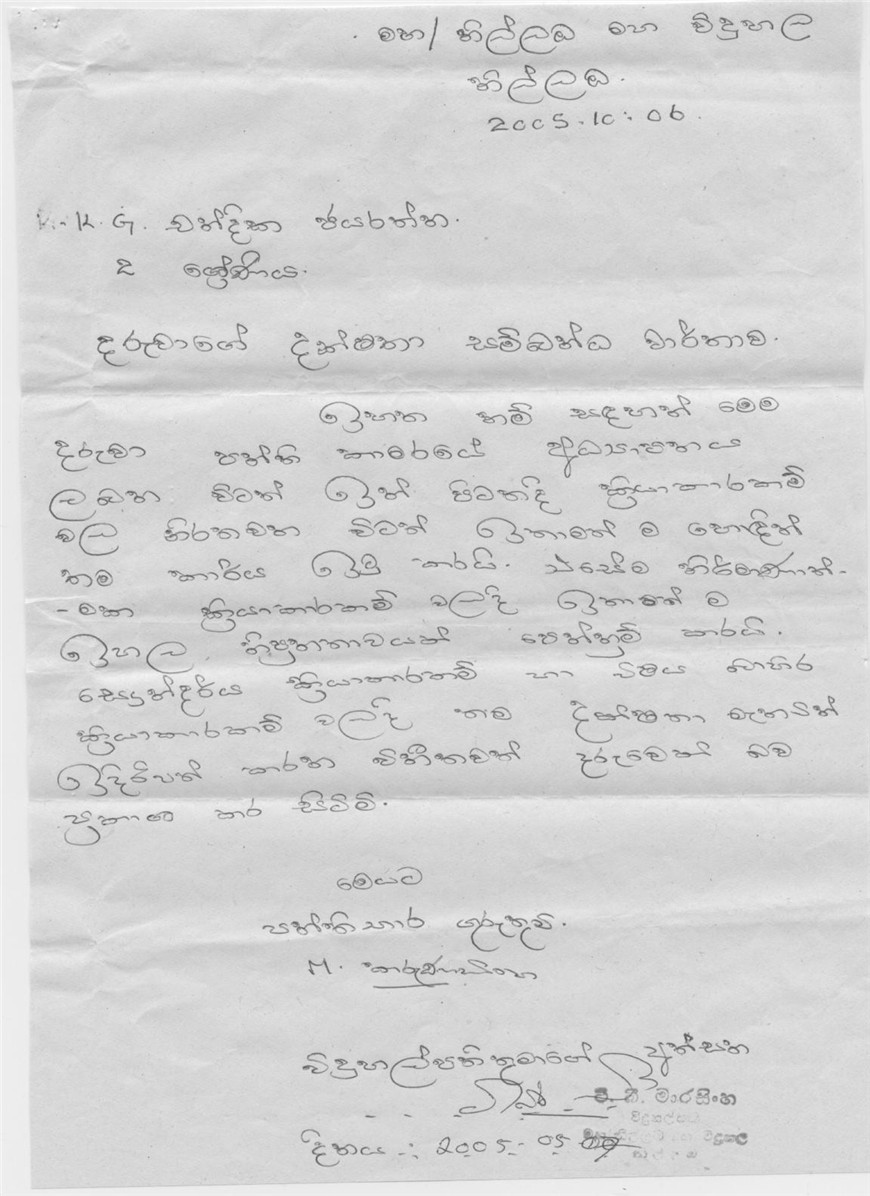 මහ/ නිල්ලඹ මහා විදුහල
නිල්ලඹ.
2005.10.06.
K.G. චන්දිකා ජයරත්න.
2 ශ්‍රේණිය.
දරුවාගේ දක්ෂතා සම්බන්ධ වාර්තාව.
ඉහත නම් සඳහන් මෙම
දරුවා පන්ති කාමරයේ අධ්‍යාපනය
ලබන විටත් ඉන් පිටතදී ක්‍රියාකාරකම්
වල නිරතවන විටත් ඉතාමත් ම හොඳින්
තම කාර්ය ඉටු කරයි. එසේම නිර්මාණාත්-
-මක ක්‍රියාකාරකම් වලදී ඉතාමත් ම
ඉහල නිපුනතාවයක් පෙන්නුම් කරයි.
සෞන්දර්ය ක්‍රියාකාරකම් හා විෂය බාහිර
ක්‍රියාකාරකම් වලදී තම දක්ෂතා මැනවින්
ඉදිරිපත් කරන විනීතවත් දරුවෙක් බව
ප්‍රකාශ කර සිටිමි.
මෙයට
පන්තිභාර ගුරුතුමි.
M. කරුණාසිංහ
විදුහල්පතිතුමාගේ අත්සන
මාරසිංහ
දිනය : 2005. 05